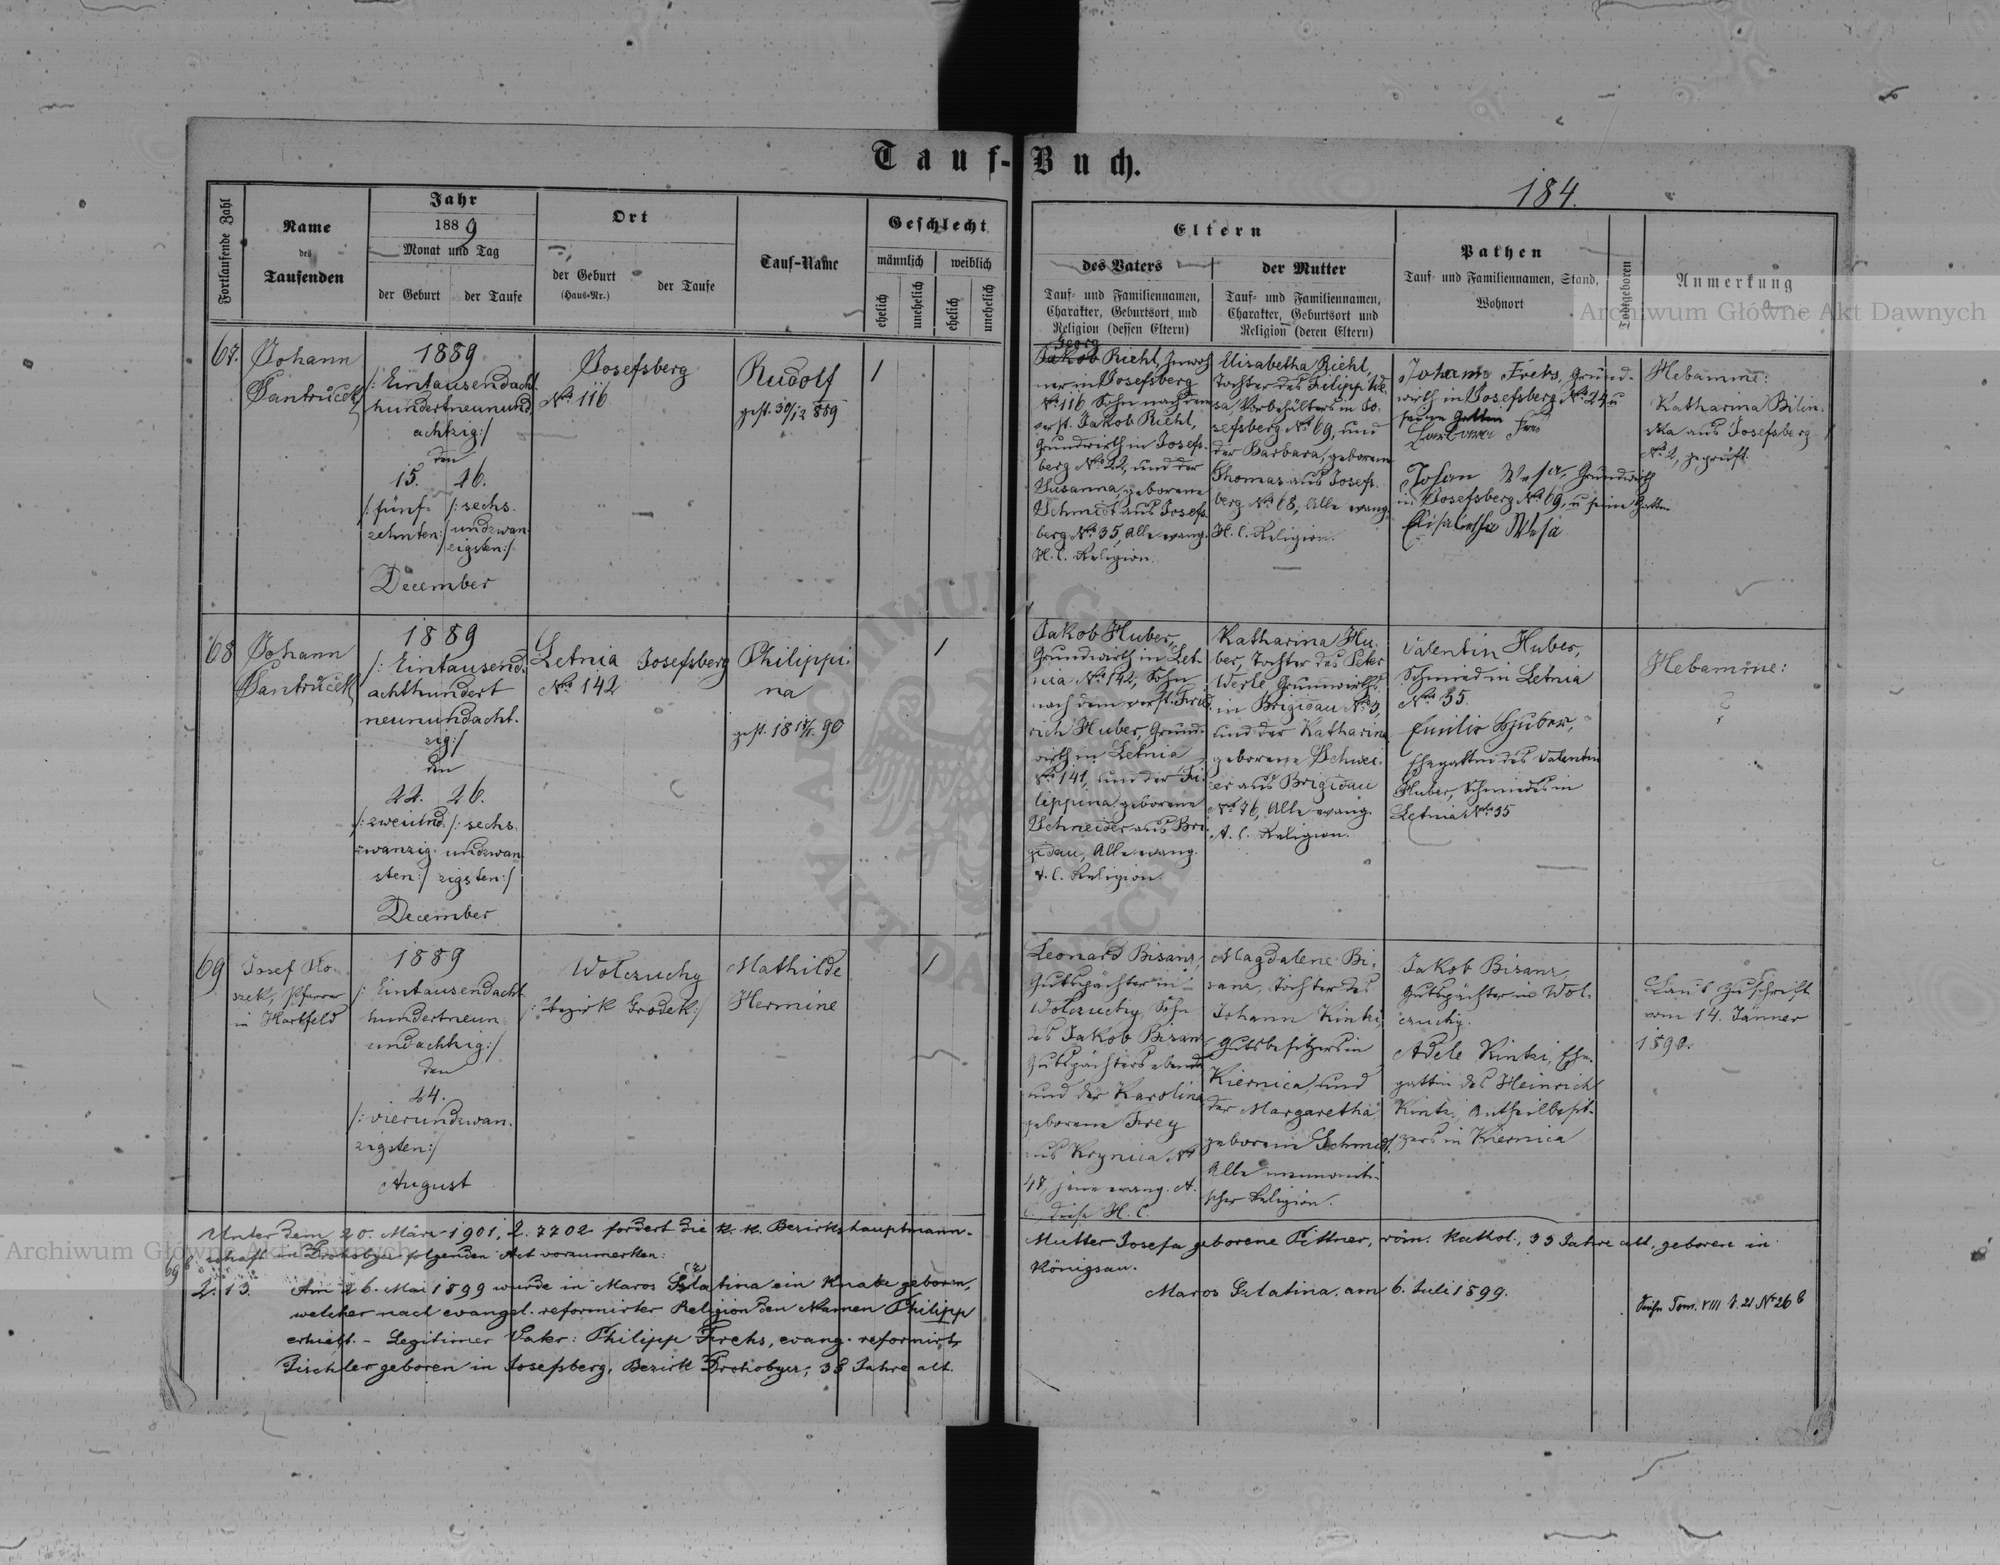 Tauf-Buch.
184.
Fortlaufende Zahl
Name
des
Taufenden
Jahr
1889
Monat und Tag
der Geburt
der Taufe
Ort
der Geburt
(Haus-Nr.)
der Taufe
Tauf-Name
Geschlecht
männlich
weiblich
ehelich
unehelich
ehelich
unehelich
Eltern
des Vaters
Tauf- und Familiennamen,
Charakter, Geburtsort und
Religion (dessen Eltern)
der Mutter
Tauf- und Familiennamen,
Charakter, Geburtsort und
Religion (deren Eltern)
Pathen
Tauf- und Familiennamen, Stand,
Wohnort
Todtgeboren
Anmerkung
67.
Johann
Santrůček
1889
/: Eintausendacht-
hundertneunund
achtzig:/
den
15. 26.
/:fünf- /:sechs-
zehnten:/ undzwan-
zigsten:/
December
Josefsberg
No 116
Rudolf
gest. 30/12 889
1
Georg
Jakob Riehl, Inwoh
ner in Josefsberg
No 116 Sohn nach dem
verst. Jakob Riehl,
Grundwirth in Josefs-
berg No 22, und der
Susanna, geborene
Schmidt aus Josefs-
berg No 35, Alle evang.
H. C. Religion.
Elisabetha Riehl,
Tochter des Filipp We
sa, Vorbehälters in Jo-
sefsberg No 69, und
der Barbara, geborene
Thomas aus Josefs-
berg No 68, Alle evang.
H. C. Religion.
Johann Freks, Grund-
wirth in Josefsberg No 24 u
seine Gattin
Johan Wesa, Grundwirth
in Josefsberg No 69, u seine Gattin
Elisabetha Wesa
Hebamme:
Katharina Bilin-
ska aus Josefsberg
No 2, geprüft.
68
Johann
Santrůček
1889
/: Eintausend-
achthundert
neunundacht-
zig:/
den
22. 26.
/:zweiund- /:sechs-
zwanzig- undzwan
sten:/ zigsten:/
December
Letnia
No 142
Josefsberg
Philippi-
na
1
Jakob Huber,
Grundwirth in Let-
nia No 142, Sohn
nach dem verst. Fried-
rich Huber, Grund-
wirth in Letnia
No 141, und der Fi-
lippina geborene
Schneider aus Bri-
gidau, Alle evang.
A. C. Religion.
Katharina Hu-
ber, Tochter des Peter
Werle Grundwirths
in Brigidau No 3,
und der Katharina
geborene Schwei-
er aus Brigidau
No 76, Alle evang.
A. C. Religion.
Valentin Huber,
Schmied in Letnia
No 35
Emilie Huber,
Ehegattin des Valentin
Huber, Schmiedes in
Letnia No 35
Hebamme:
?
69
Josef Ko-
szek, Pfarrer
in Hartfeld
1889
/: Eintausendacht
hundertneun
undachtzig:/
den
24.
/:vierundzwan-
zigsten:/
August
Wolczuchy
/: Bezirk Grodek:/
Mathilde
Hermine
1
Leonard Bisanz,
Gutspächter in
Wolczuchy, Sohn
des Jakob Bisanz
Gutspächters ebenda
und der Karolina
geborene Frey
aus Krynica No
47, jene evang. A.
C. diese H. C.
Magdalene Bi-
sanz, Tochter des
Johann Kintzi,
Gutsbesitzers in
Kiernica, und
der Margaretha,
geborene Schmidt,
Alle mennoniti-
scher Religion.
Jakob Bisanz,
Gutspächter in Wol-
czuchy.
Adele Kintzi, Ehe-
gattin des Heinrich
Kintzi, Antheilbesit-
zers in Kiernica
Laut Zuschrift
vom 14. Jänner
1890.
Unter dem 20. März 1901, Z. 7702 fordert die k. k. Bezirkshauptmann-
schaft in Drohobycz folgenden Akt vorzumerken:
Z. 13. Am 26. Mai 1899 wurde in Maros Szlatina ein Knabe geboren,
welcher nach evangel. reformirter Religion den Namen Philipp
erhielt. - Legitimer Vater: Philipp Freks, evang. reformirt,
Tischler geboren in Josefsberg, Bezirk Drohobycz, 38 Jahre alt.
Mutter Josefa geborene Pittner, röm. kathol., 33 Jahre alt, geboren in
Königsau.
Maros Szlatina, am 6. Juli 1899.
Siehe Tom. VIII S. 21 No 26 b
Archiwum Główne Akt Dawnych
Archiwum Główne Akt Dawnych
ARCHIWUM GŁÓWNE AKT DAWNYCH